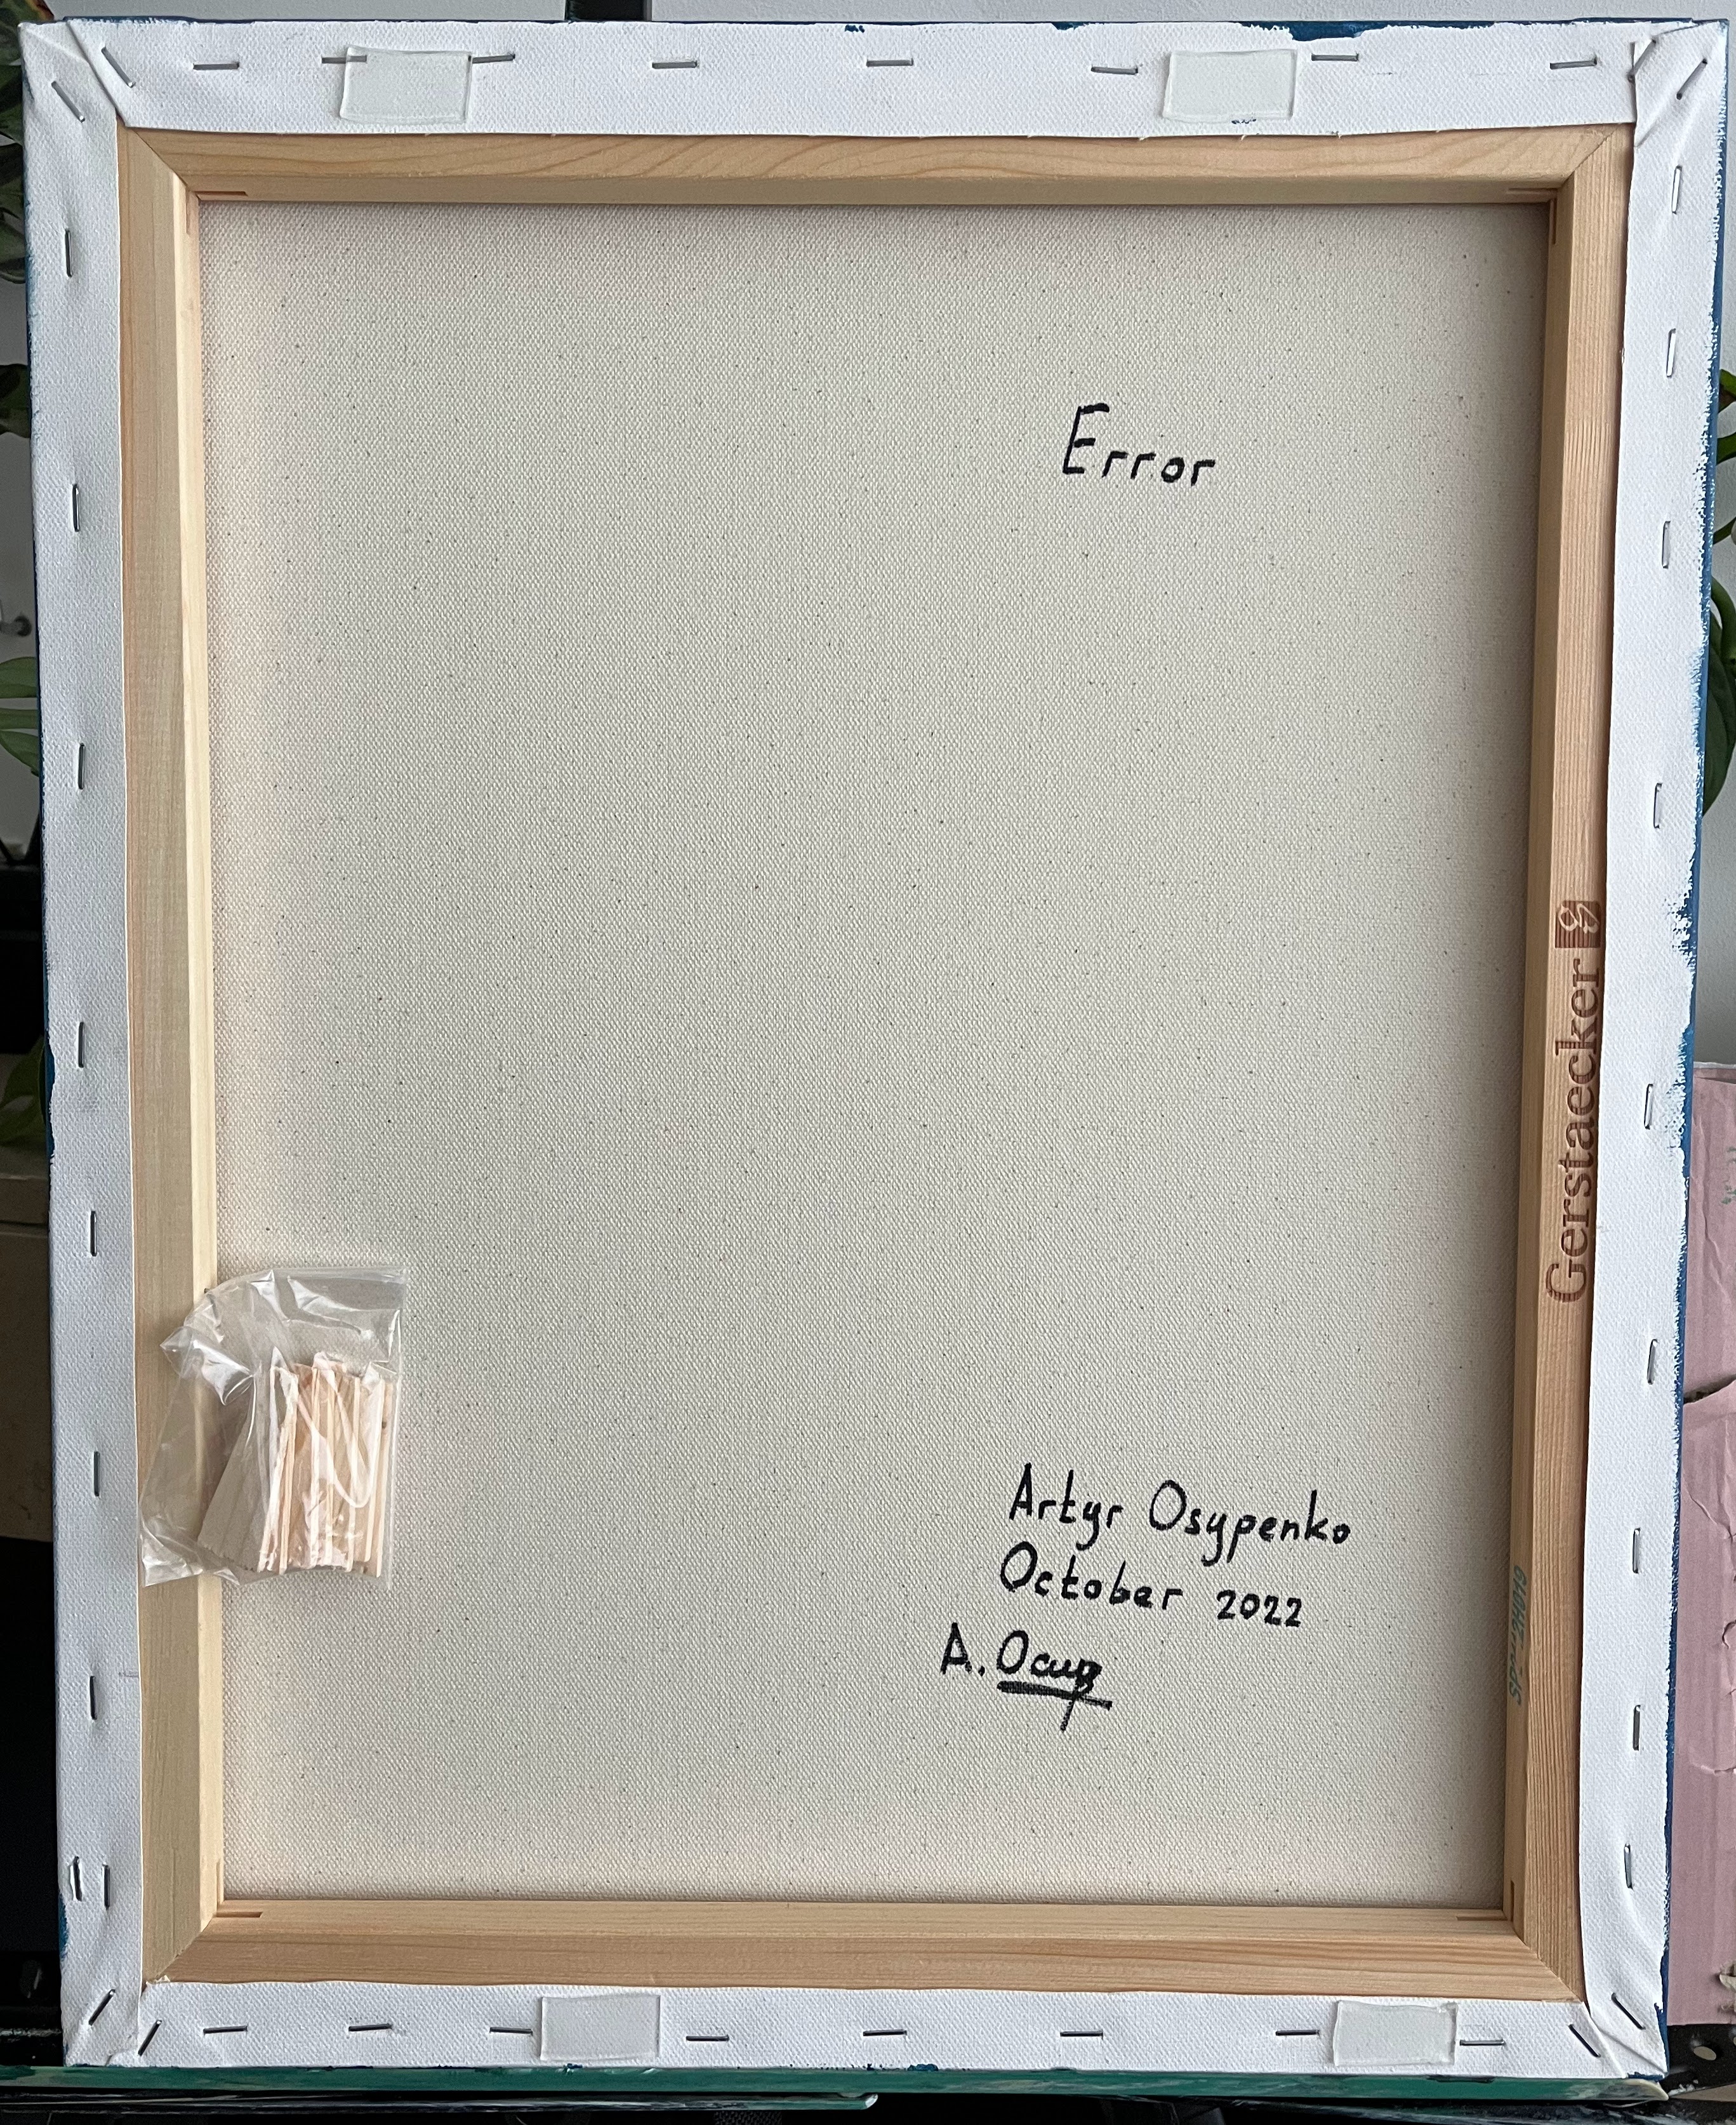 Error
Gerstaecker
Artyr Osypenko
October 2022
A. Осир